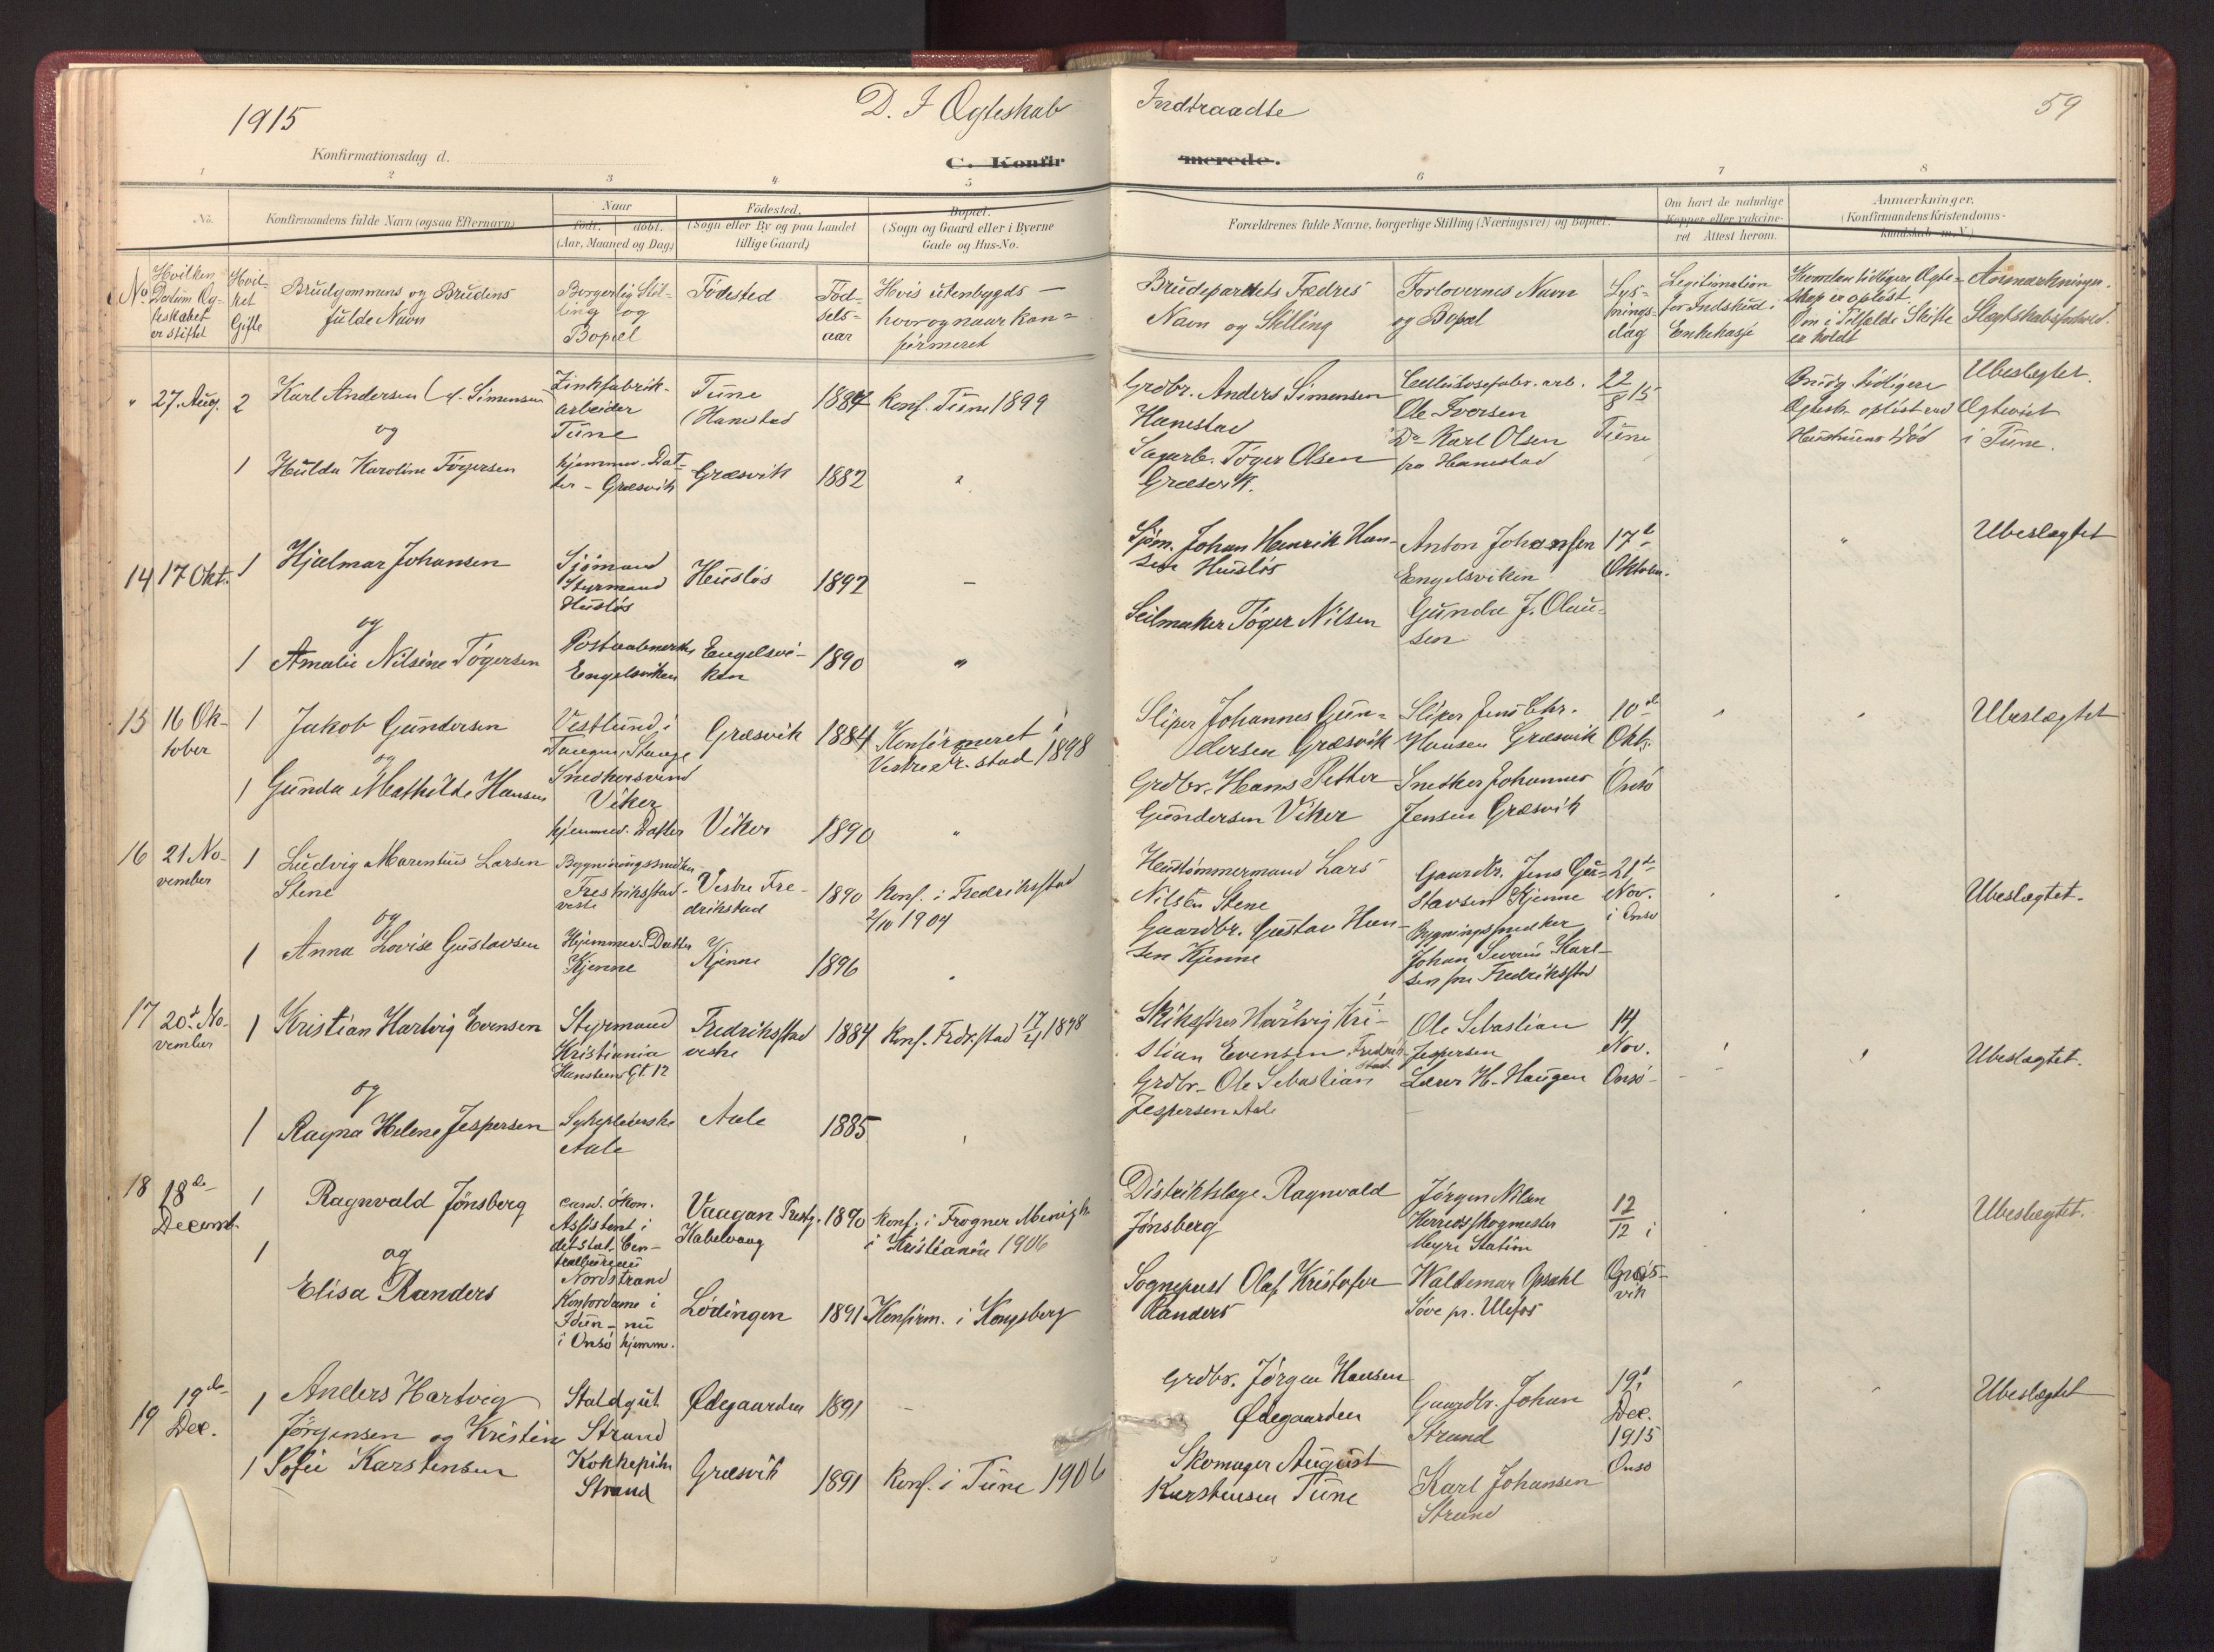 1915
D. I Ægteskab
Indtraadte
59
Konfirmationsdag d.
C. Konfir
merede.
1
2
3
4
5
6
7
8
No.
Konfirmandens fulde Navn (ogsaa Efternavn)
Naar
født. døbt.
(Aar, Maaned og Dag)
Fødested.
(Sogn eller By og paa Landet
tillige Gaard)
Bopæl.
(Sogn og Gaard eller i Byerne
Gade og Hus-No.
Forældrenes fulde Navne, borgerlige Stilling (Næringsvei) og Bopæl.
Om havt de naturlige
Kopper eller vaccine-
ret Attest herom.
Anmærkninger.
(Konfirmandens Kristendoms-
kundskab m. V.)
No
Hvilken
Datum Æg-
teskabet
er stiftet
Hvil-
ket
Gifte
Brudgommens og Brudens
fulde Navn
Borgerlig Stil-
ling og
Bopæl
Födested
Föd-
sels-
aar
Hvis utenbygds —
hvor og naar kon-
firmeret
Brudeparrets Fædres
Navn og Stilling
Forlovernes Navn
og Bopæl
Lys-
nings-
dag
Legitimation
for Indskud i
Enkekasse
Hvordan tidligere Ægte-
skap er opløst.
Om i Tilfælde Skifte
er holdt
Anmærkninger.
Slægtskabsforhold.
" 27. Aug. 2 Karl Andersen (f. Simensen
Zinkfabrik-
arbeider
Tune
Tune
(Hanestad
1884 Konf. Tune 1899
Grdbr. Anders Simensen
Hanestad
Cellulosefabr. arb.
Ole Iversen
Do Karl Olsen
fra Hanestad
22/8 15
Tune
Brudg. tidligere
Ægtesk. opløst ved
Hustruens Död
Ubeslægtet.
Ægteviet
i Tune.
og
1 Hulda Karoline Törgersen
hjemmev. Dat-
ter - Græsvik
Græsvik 1882 "
Sagarb. Töger Olsen
Græsvik.
14 17 Okt. 1 Hjalmar Johansen
Sjömand
Styrmand
Huslös
Huslös 1892 —
Sjöm. Johan Henrik Han-
sen Huslös
Anton Johansen
Engelsviken
17d
Oktober.
" Ubeslægtet
og
1 Amalie Nilsine Tögersen
Postaabnerske
Engelsviken
Engelsvi-
ken
1890 "
Seilmaker Töger Nilsen
Gunda J. Olau-
sen
15 16 Ok-
tober
1 Jakob Gundersen
Vestlund i
Tangen, Stange
Snedkersvend
Græsvik 1884 Konfirmeret i
Vestre Fr. stad 1898
Sliper Johannes Gun-
dersen Græsvik
Sliper Jens Chr.
Hansen Græsvik
10de
Okt.
Onsö
" " Ubeslægtet
og
1 Gunda Mathilde Hansen
Viker
hjemmev. Datter
Viker 1890 "
Grdbr. Hans Petter
Gundersen Viker
Snedker Johannes
Jensen Græsvik
16 21 No-
vember
1 Ludvig Marentius Larsen
Stene
Bygningssnedker
Fredriksstad
vestre
Vestre Fre-
drikstad
1890 Konf. i Fredriksstad
2/10 1904
Hustömmermand Lars
Nilsen Stene
Gaardbr. Jens Gu-
stavsen Kjenne
21d
Nov.
i Onsö
" " Ubeslægtet.
og
1 Anna Lovise Gustavsen
Hjemmev. Datter
Kjenne
Kjenne 1896 "
Gaardbr. Gustav Han-
sen Kjenne
Bygningssnedker
Johan Severin Karl-
sen fra Fredriksstad
17 20d No-
vember
1 Kristian Hartvig Evensen
Styrmand
Kristiania
Hansteens Gt. 12
Fredriksstad
vestre
1884 Konf. Fredr.stad 17/4 1898
Skibsförer Hartvig Kri-
stian Evensen Fredrik-
stad
Ole Sebastian
Jespersen
14
Nov.
Onsö
" " Ubeslægtet.
og
1 Ragna Helene Jespersen
Sykepleierske
Aale
Aale 1885 "
Grdbr. Ole Sebastian
Jespersen Aale
Lærer H. Haugen
18 18de
Decemb.
1 Ragnvald Jönsberg
cand. ökon.
Assistent i
det stat. Cen-
tralbureau
Nordstrand
Vaagan Prestg.
Kabelvaag
1890 Konf. i Frogner Menigh.
i Kristiania 1906
Distriktslæge Ragnvald
Jönsberg
Jörgen Nilsen
Herredsskogmester
Station
12/12 i
Græs-
vik
" " Ubeslægtet.
og
1 Elisa Randers
Kontordame i
nu
i Onsö hjemm.
Lödingen 1891 Konfirm. i Kongsberg
Sogneprest Olaf Kristofer
Randers
Waldemar Opsahl
Söve pr. Ulefos
19 19de
Dec.
1 Anders Hartvig
Jörgensen og Kristine
Staldgut
Strand
Ødegaarden 1891 —
Grdbr. Jörgen Hansen
Ødegaarden
Gaardbr. Johan
Strand
19d
Dec.
1915
Onsö
" " Ubeslægtet
1 Sofie Karstensen
Kokkepike
Strand
Græsvik 1891 Konf. i Tune 1906
Skomager August
Karstensen Tune
Karl Johansen
Strand